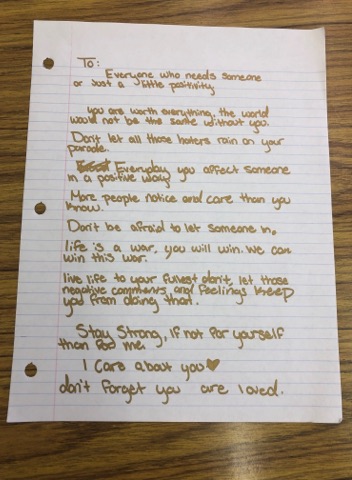 To:
Everyone who needs someone
or Just a little positivity
you are worth everything, the world
would not be the same without you.
Don't let all those haters rain on your
parade.
Everyday you affect someone
in a positive way
More people notice and care than you
know.
Don't be afraid to let someone in.
life is a war, you will win. We can
win this war.
live life to your fullest don't, let those
negative comments, and feelings keep
you from doing that.
Stay Strong, if not for yourself
than for me.
I care about you♥
don't forget you are loved.